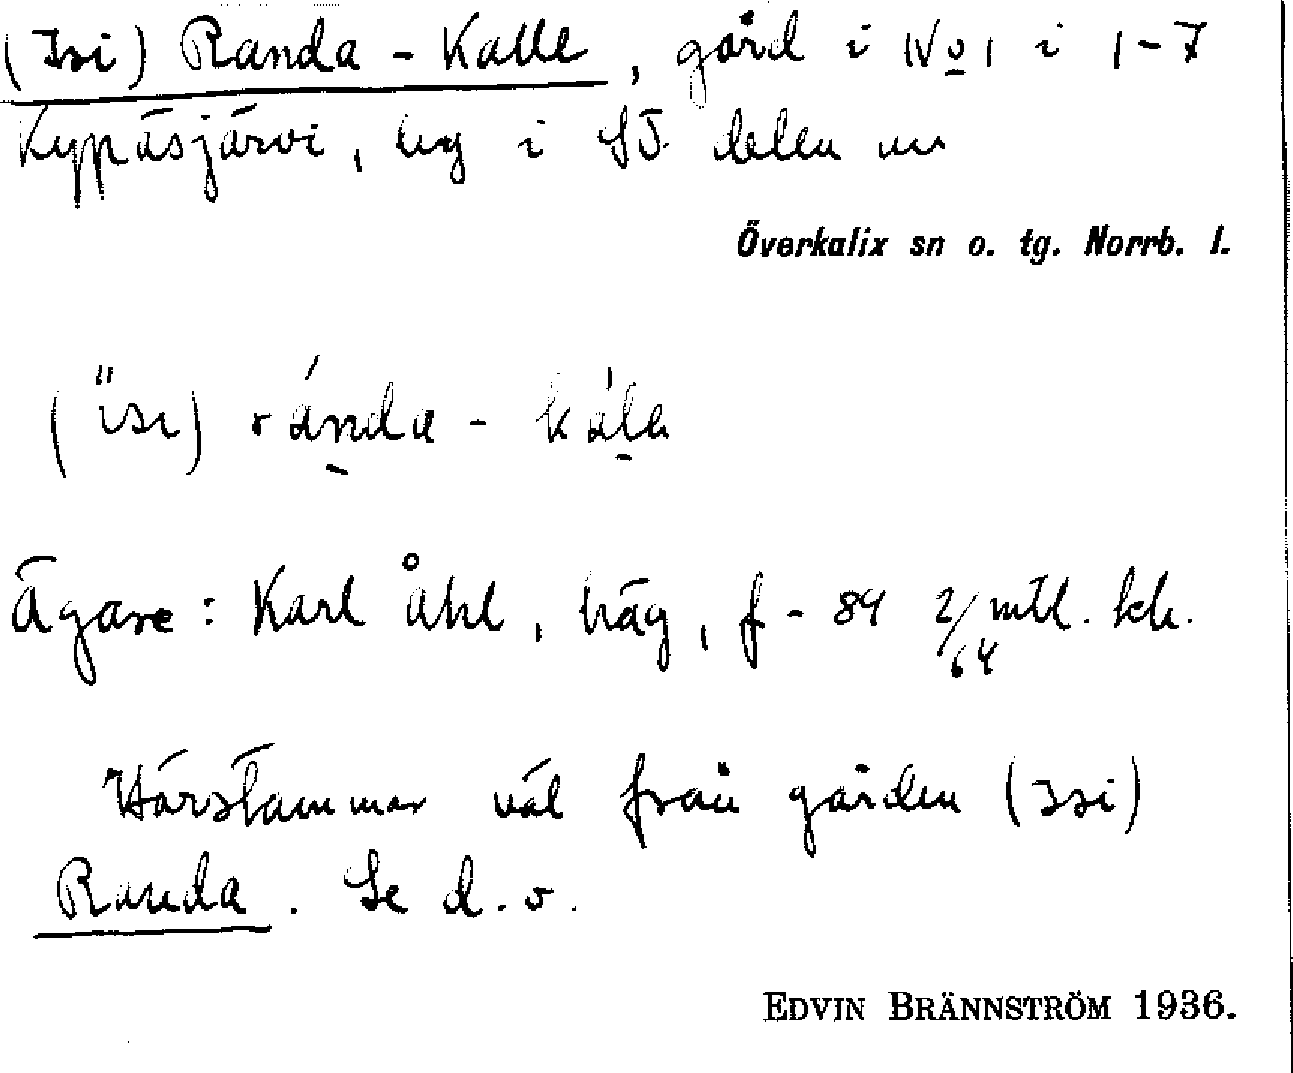 (Isi) Randa - Kalle, gård i No 1 i 1-7
Kypäsjärvi, by i SÖ delen av
Överkalix sn o. tg. Norrb. l.
(ïsi) ránda - kála
Ägare: Karl Åhl, häg, f - 84 2/64 mtl. kr.
Härstammar väl från gården (Isi)
Randa. Se d. o.
EDVIN BRÄNNSTRÖM 1936.